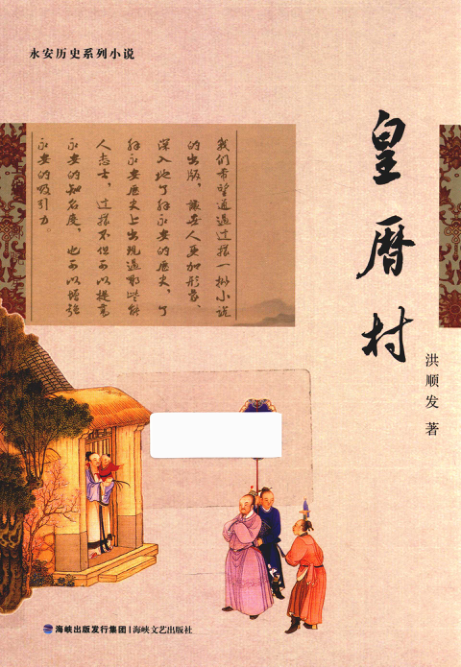 永安历史系列小说
皇曆村
洪顺发 著
我们希望通過这样一批小说
的出版，人更加形象、
深入地了解永安的歷史，了
解永安歷史上出现過那些能
人志士，这样不但可以提高
永安的知名度，也可以增强
永安的吸引力。
海峡出版发行集团 | 海峡文艺出版社